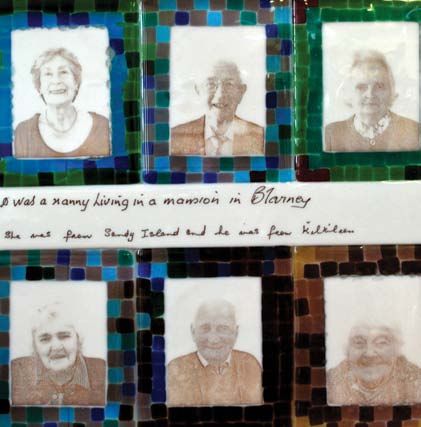 was a nanny living in a mansion in Blarney
She was from Sandy Island and he was from Kilkileen